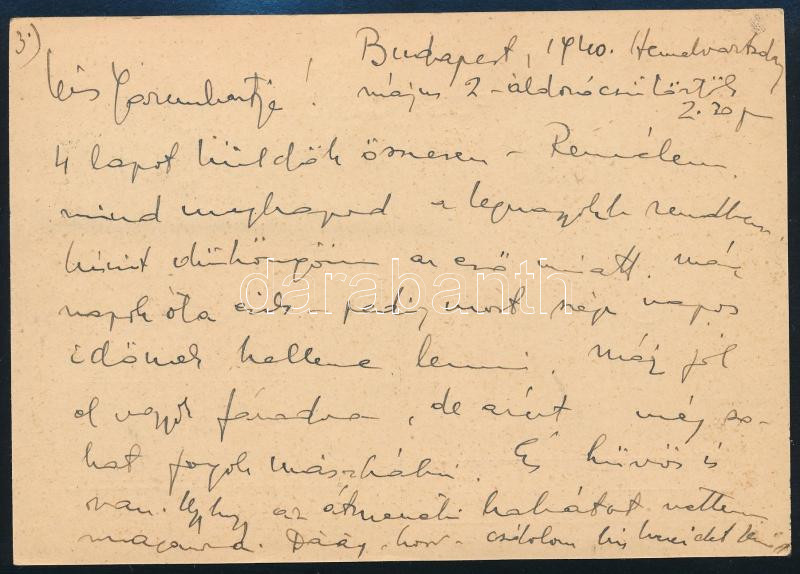 3.)
Budapest, 1940.
május 2 - áldozócsütörtök
2.30
4 lapot küldök összesen - Remélem
mind megkapod a legnagyobb rendben.
dühöngöm az eső miatt. Már
napok óta esik - pedig most szép napos
időnek kellene lenni. Már jól
el vagyok fáradva, de azért még so-
kat fogok mászkálni. És hűvös is
van. Úgyhogy az átmeneti kabátot vettem
magamra. csókolom kis kezeidet
darabanth